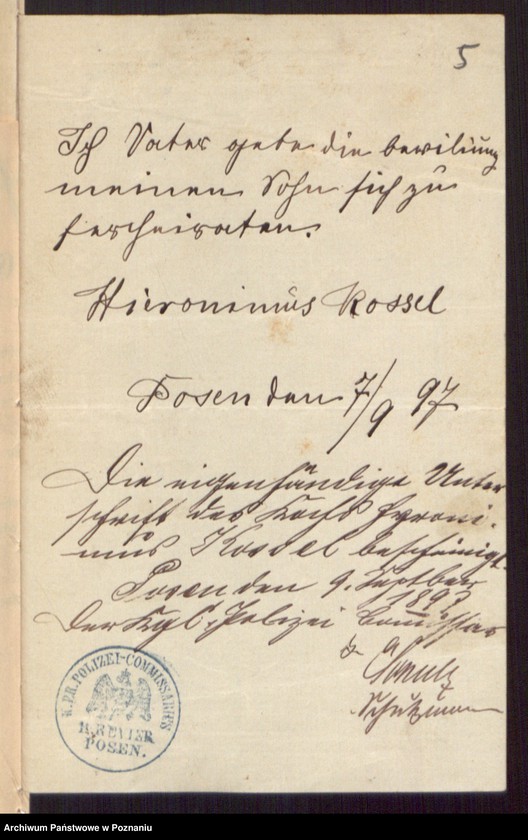 5
Ich Vater gebe die beviliung
meinen Sohn sich zu
ferheiraten.
Hieronimus Kossel
Posen den 7/9 97
Die eigenhändige Unter
schrift des Kochs Hyroni-
mus Kossel bescheinigt.
Posen den 9. Septber
1897
Der Kgl. Polizei Comissar
Schutzmann
K. PR. POLIZEI-COMMISSARIUS
POSEN.
Archiwum Państwowe w Poznaniu